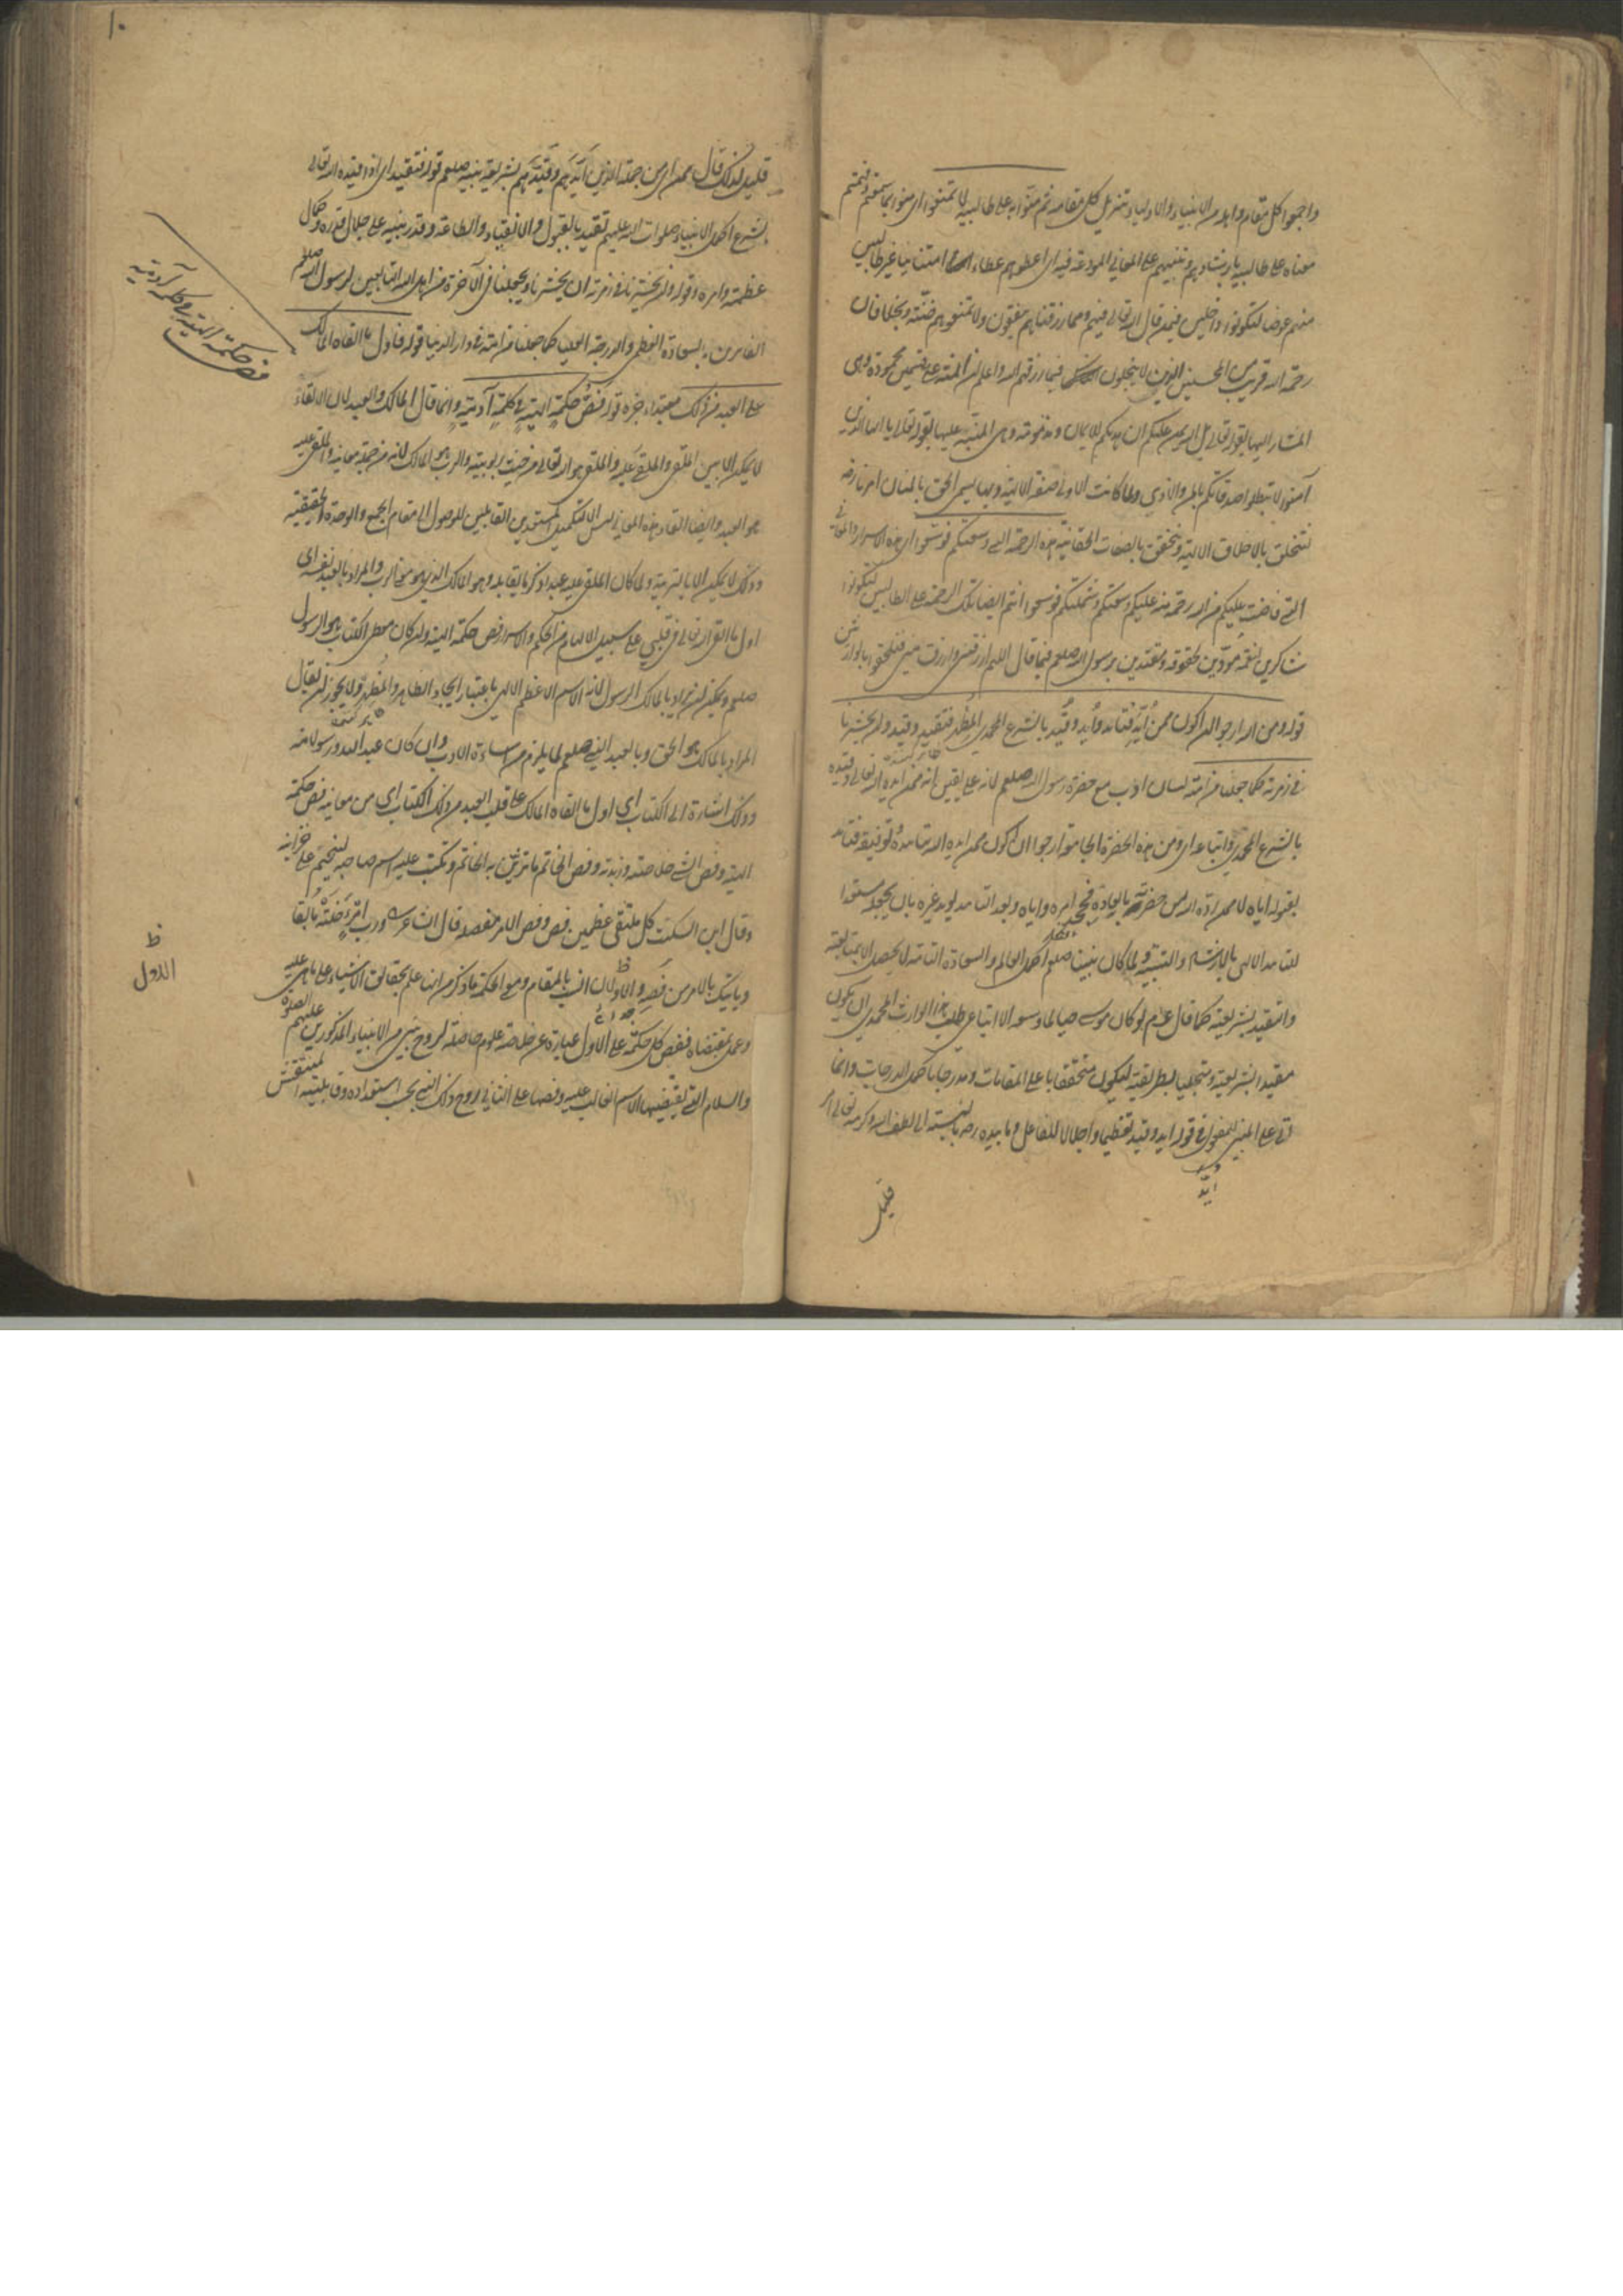 واجمعوا كل مقام واهله من الانبياء والاولياء وتنزيل كل مقامه ثم منوا به على طالبيه لا تمنعوا اى منوا بما سمعتم وفهمتم
معناه على طالبيه بارشادهم وتنبيههم على المعانى المودعة فيه اى اعطوهم عطاء امتنانيا غير طالبين
منهم عوضا لتكونوا داخلين فيمن قال الله تعالى فيهم ومما رزقناهم ينفقون ولا تمنعوهم ضنة وبخلا فان
رحمة الله قريب من المحسنين الذين لا يبخلون فيما رزقهم الله واعلم ان المنة على قسمين محمودة وهى
المشار اليها بقوله تعالى بل الله يمن عليكم ان هديكم للايمان ومذمومة وهى المنبه عليها بقوله تعالى يا ايها الذين
آمنوا لا تبطلوا صدقاتكم بالمن والاذى ولما كانت الاولى صفة الالهية وبها يسمى الحق بالمنان امرنا رضه
لنتخلق بالاخلاق الالهية ونتحقق بالصفات الحقانية هذه الرحمة التى وسعتكم فوسعوا اى هذه الاسرار والمعانى
التى فاضت عليكم من الله رحمة منه عليكم وسعتكم وشملتكم فوسعوا انتم ايضا تلك الرحمة على الطالبين لتكونوا
شاكرين لنعمه مؤدين لحقوقه ومقتدين برسول الله صلعم فيما قال اللهم ارزقنى وارزق منى فتلحقوا بالوارثين
قوله ومن الله ارجو ان اكون ممن أيد فتايد وأيد وقيد بالشرع المحمدى المطهر فتقيد وقيد وان يحشرنا
فى زمرته كما جعلنا من امته لسان ادب مع حضرة رسول الله صلعم لانه على يقين انه ممن ايده الله تعالى وقيده
بالشرع المحمدى واتباعه اى ومن هذه الحضرة الجامعة ارجوا ان اكون ممن ايده الله بتاييده وتوفيقه فتايد
بقبوله اياه لا ممن رده الله من حضرته بالعادة فجحد امره واياه وبعد التايد يؤيد غيره بان يجعله مستعدا
للتايد الالهى بالارشاد والتنبيه ولما كان نبينا صلعم اكمل العالم والسعادة التامة لا يحصل الا بمتابعته
والتقيد بشريعته كما قال عم لو كان موسى حيا لما وسعه الا اتباعى طلب هذا الوارث المحمدى ان يكون
مقيدا بشريعته ومتجليا بطريقته ليكون متحققا باعلى المقامات ومدرجا باكمل الدرجات وانما
اتى على المبنى للمفعول فى قوله ايد وقيد تعظيما واجلالا للفاعل وما بيده رضه بالنسبة الى لطف الله وكرمه تعالى امر
قليل
قليل لذلك قال ممن اى من جملة الذين أيدهم وقيدهم بشريعة نبيه صلعم قوله فتقيد اى اذا قيده الله تعالى
بشرع اكمل الانبياء صلوات الله عليهم تقيد بالقبول والانقياد والطاعة وقدر بنيه على جلال قدره وكمال
عظمته وامره وقوله وان يحشرنا فى زمرته اى يحشرنا ويجعلنا فى الآخرة من اهل الله التابعين لرسول الله صلعم
الفائزين بالسعادة العظمى والدرجة العليا كما جعلنا من امته فى دار الدنيا قوله فاول ما القاه المالك
على العبد من ذلك مبتداء خبره قوله فص حكمة الهية فى كلمة آدمية وانما قال المالك والعبد لان الالقاء
لا يمكن الا بين الملقى والملقى عليه والملقى هو الله تعالى من حيث ربوبيته والرب هو المالك لانه من جملة معانيه والملقى عليه
هو العبد وايضا القاء هذه المعانى ليس الا لتكميل المستعدين القابلين للوصول الى مقام الجمع والوحدة الحقيقية
وذلك لا يمكن الا بالتربية ولما كان الملقى عليه عبدا ذكر ما يقابله وهو المالك الذى هو معنى الرب والمراد بالعبد نفسه اى
اول ما القى الله تعالى فى قلبى على سبيل الالهام من الحكم والاسرار فص حكمة الهية وان كان معطى الكتاب هو الرسول
صلعم ويمكن ان يراد بالمالك الرسول لانه الاسم الاعظم الالهى باعتبار ايجاد الظاهر والمظهر ولا يجوز ان يقال
المراد بالمالك هو الحق وبالعبد النبى صلعم لما يلزم من اساءة الادب وان كان عبد الله ورسوله منه
وذلك اشارة الى الكتاب اى اول ما القاه المالك على قلب العبد من ذلك الكتاب اى من معانيه فص حكمة
الهية وفص الشئ خلاصته وزبدته وفص الخاتم ما تزين به الخاتم ويكتب عليه اسم صاحبه ليختم على خزاينه
وقال ابن السكيت كل ملتقى عظمين فص وفص الامر مفصله قال الشاعر ورب امرء خلته مائقا
وياتيك بالامر من فصه والاول انسب بالمقام ومع الحكمة ما ذكر من انها علم بحقائق الاشياء على ما هى عليه
وعمل بمقتضاه ففص كل حكمة على الاول عبارة عن خلاصة علوم حاصلة لروح نبى من الانبياء المذكورين عليهم الصلوة
والسلام التى يقتضيها الاسم الغالب عليه وفصها على الثانى روح ذلك النبى بحسب استعداده وقابليته المنتقش
فص حكمة الهية فى كلمة آدمية
ظ
الاول
١٠